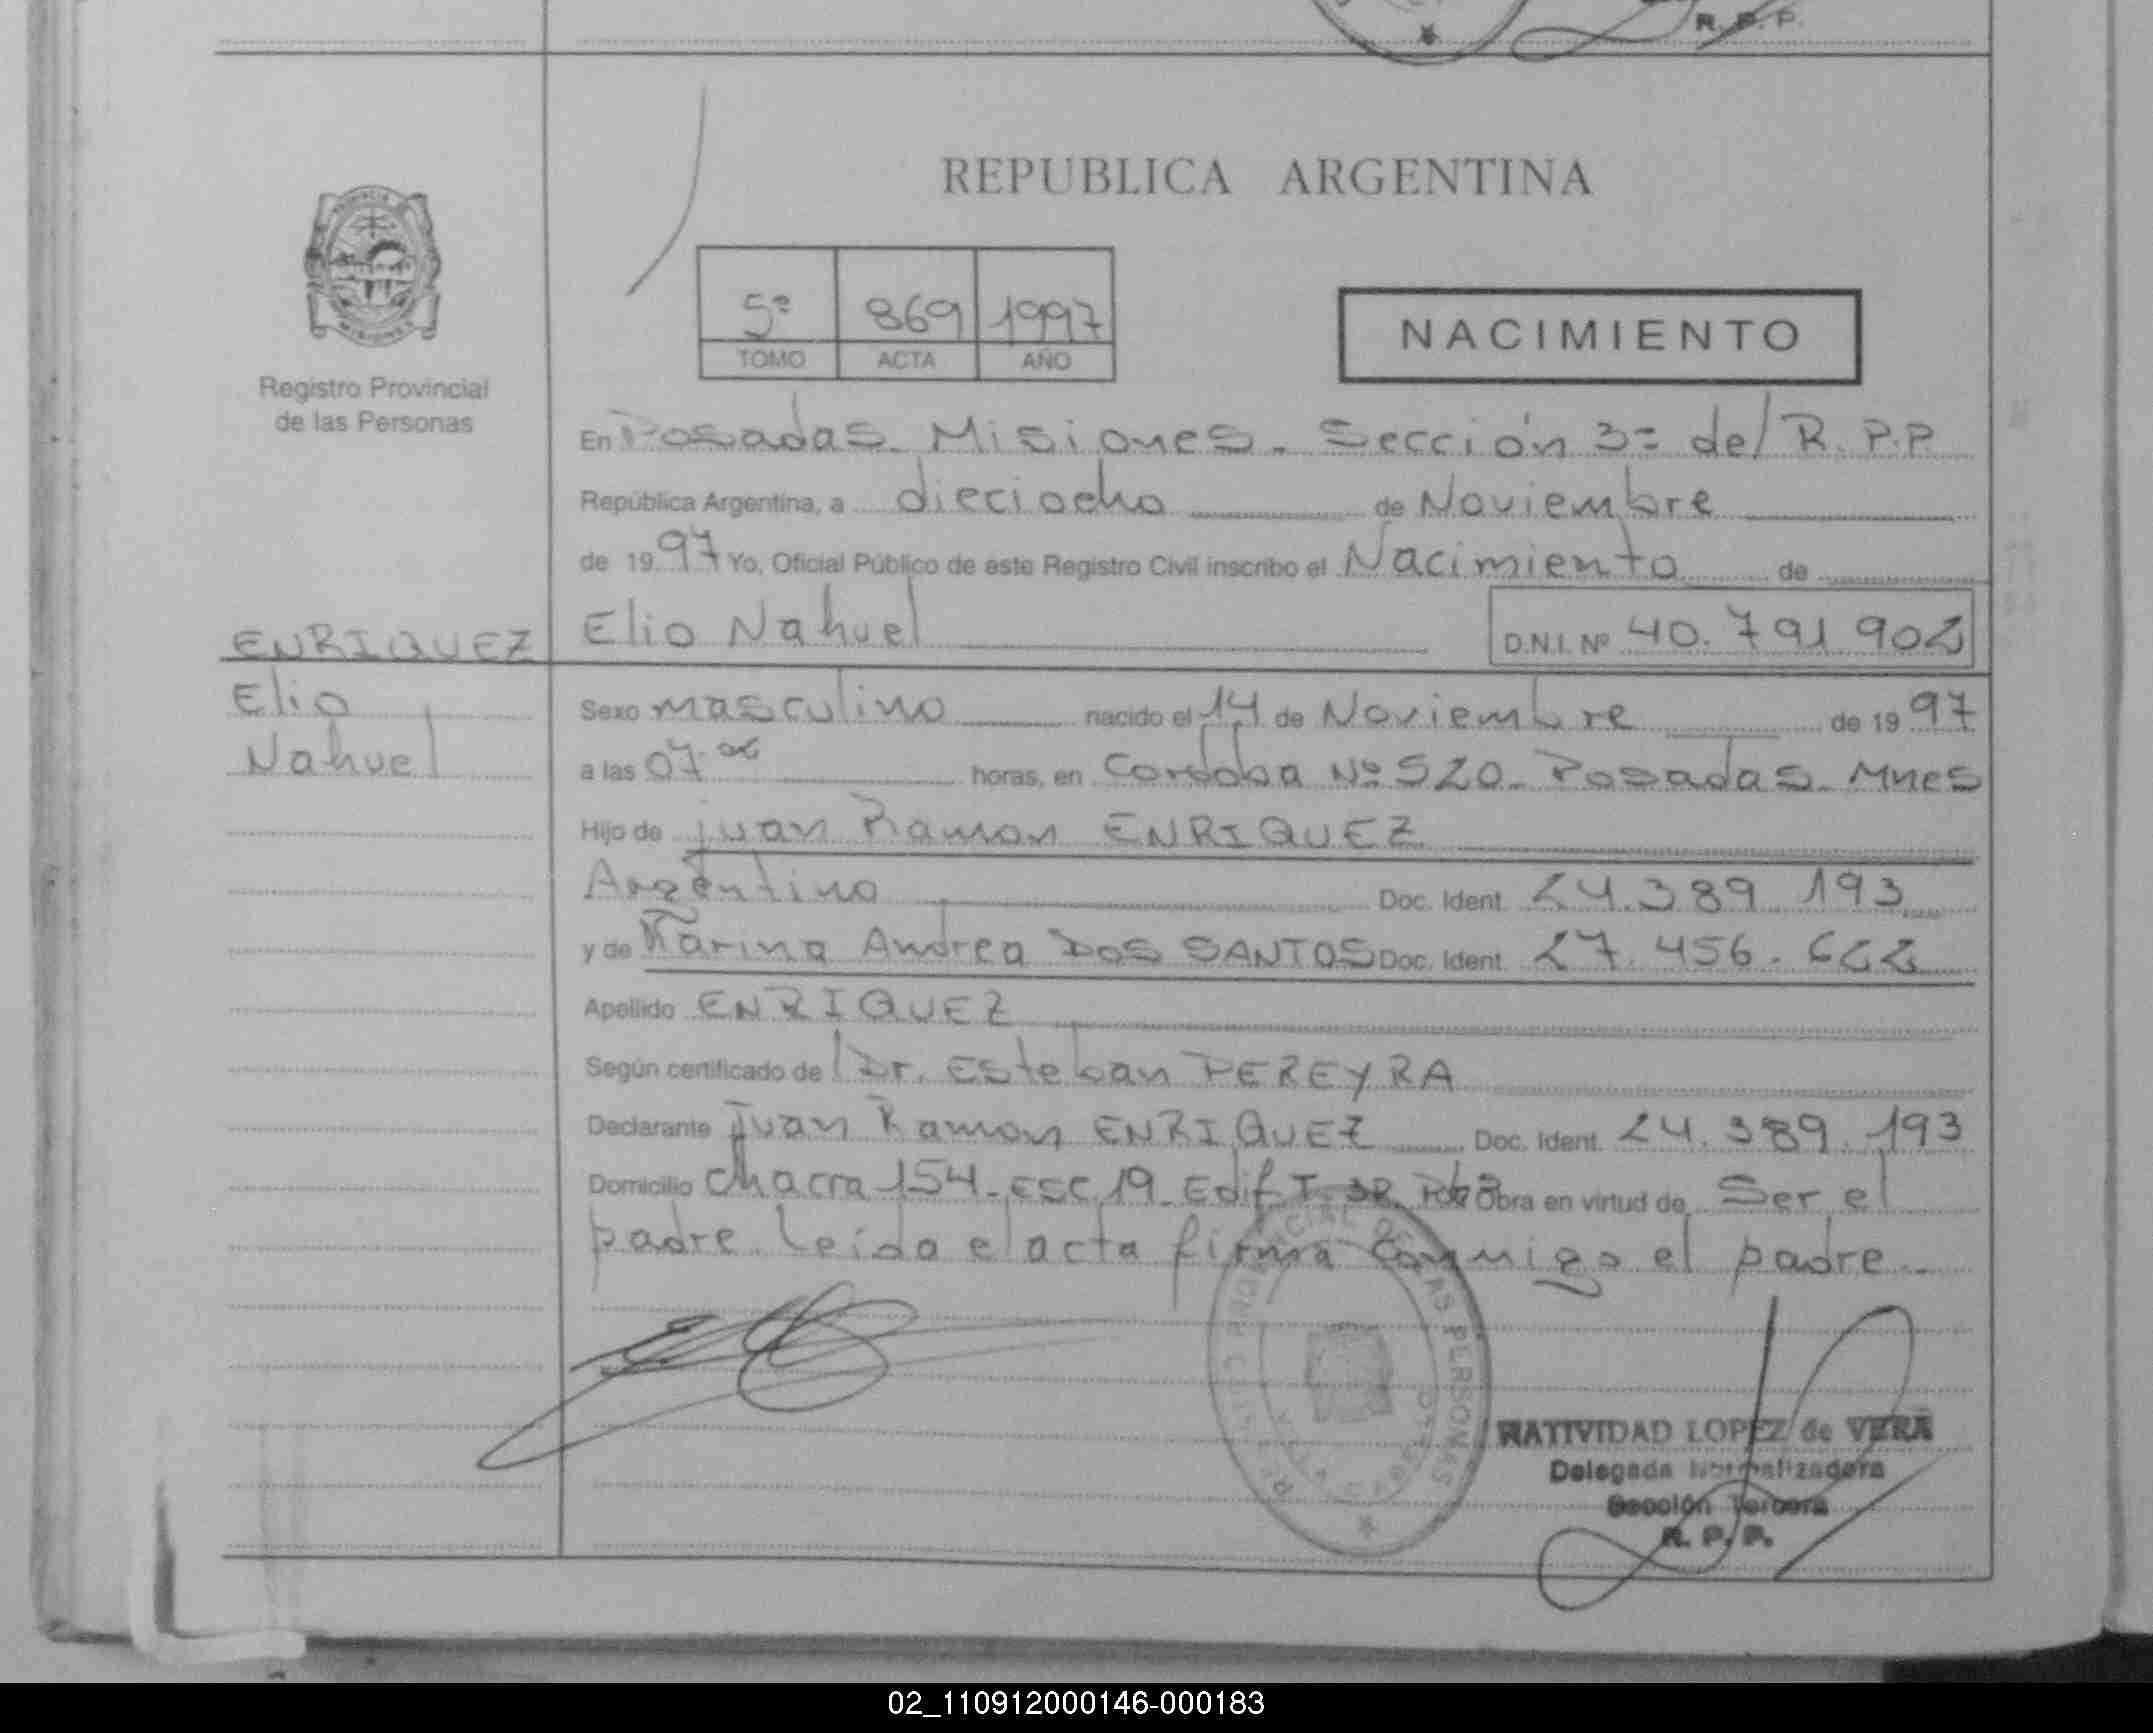 R. P. P.
REPUBLICA ARGENTINA
5ª 869 1997
TOMO ACTA AÑO
NACIMIENTO
Registro Provincial
de las Personas
En Posadas Misiones - Sección 3ª del R.P.P
República Argentina, a dieciocho de Noviembre
de 1997 Yo, Oficial Público de este Registro Civil inscribo el Nacimiento de
ENRIQUEZ Elio Nahuel D.N.I. Nº 40.791.902
Elio
Nahuel
Sexo masculino nacido el 14 de Noviembre de 1997
a las 07 horas, en Cordoba Nº 520 - Posadas - Mnes
Hijo de Juan Ramon ENRIQUEZ
Argentino Doc. Ident. 24.389.193
y de Karina Andrea DOS SANTOS Doc. Ident. 27.456.622
Apellido ENRIQUEZ
Según certificado de Dr. Esteban PEREYRA
Declarante Juan Ramon ENRIQUEZ Doc. Ident. 24.389.193
Domicilio Chacra 154 - ESC 19 - Edif I Obra en virtud de Ser el
padre. Leída el acta firma conmigo el padre.
PROVINCIAL DE LAS PERSONAS
NATIVIDAD LOPEZ de VERA
Delegada Normalizadora
Sección Tercera
R. P. P.
02_110912000146-000183